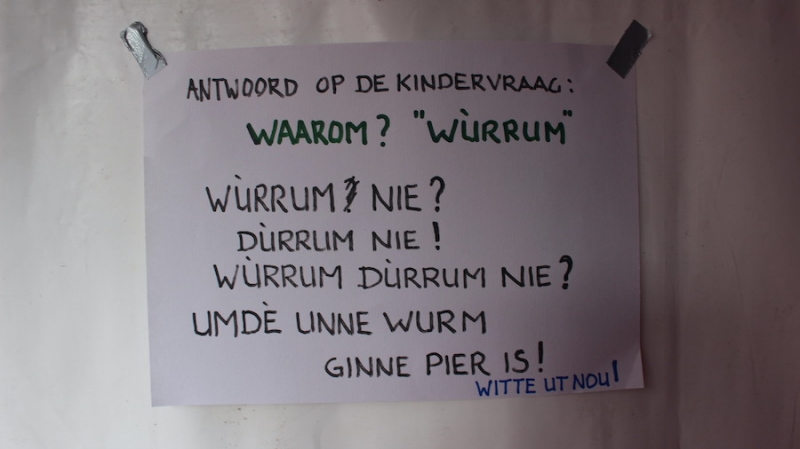 ANTWOORD OP DE KINDERVRAAG:
WAAROM? "WÙRRUM"
WÙRRUM NIE?
DÙRRUM NIE!
WÙRRUM DÙRRUM NIE?
UMDÈ UNNE WURM
GINNE PIER IS!
WITTE UT NOU!